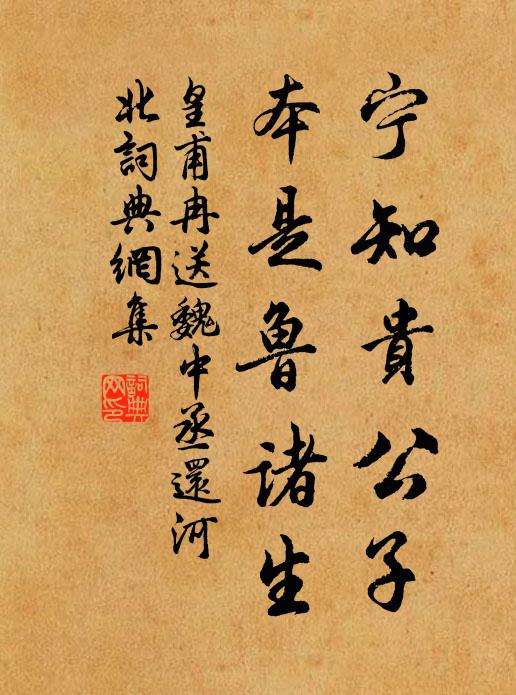 宁知貴公子
本是魯诸生
皇甫冉送魏中丞還河
北詞典網集
詞典
网印